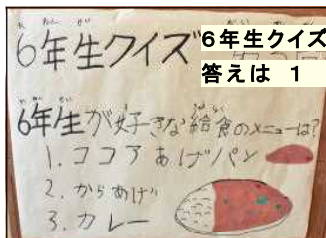 6年生クイズ
6年生クイズ
答えは 1
6年生が好きな給食のメニューは?
1. ココアあげパン
2. からあげ
3. カレー